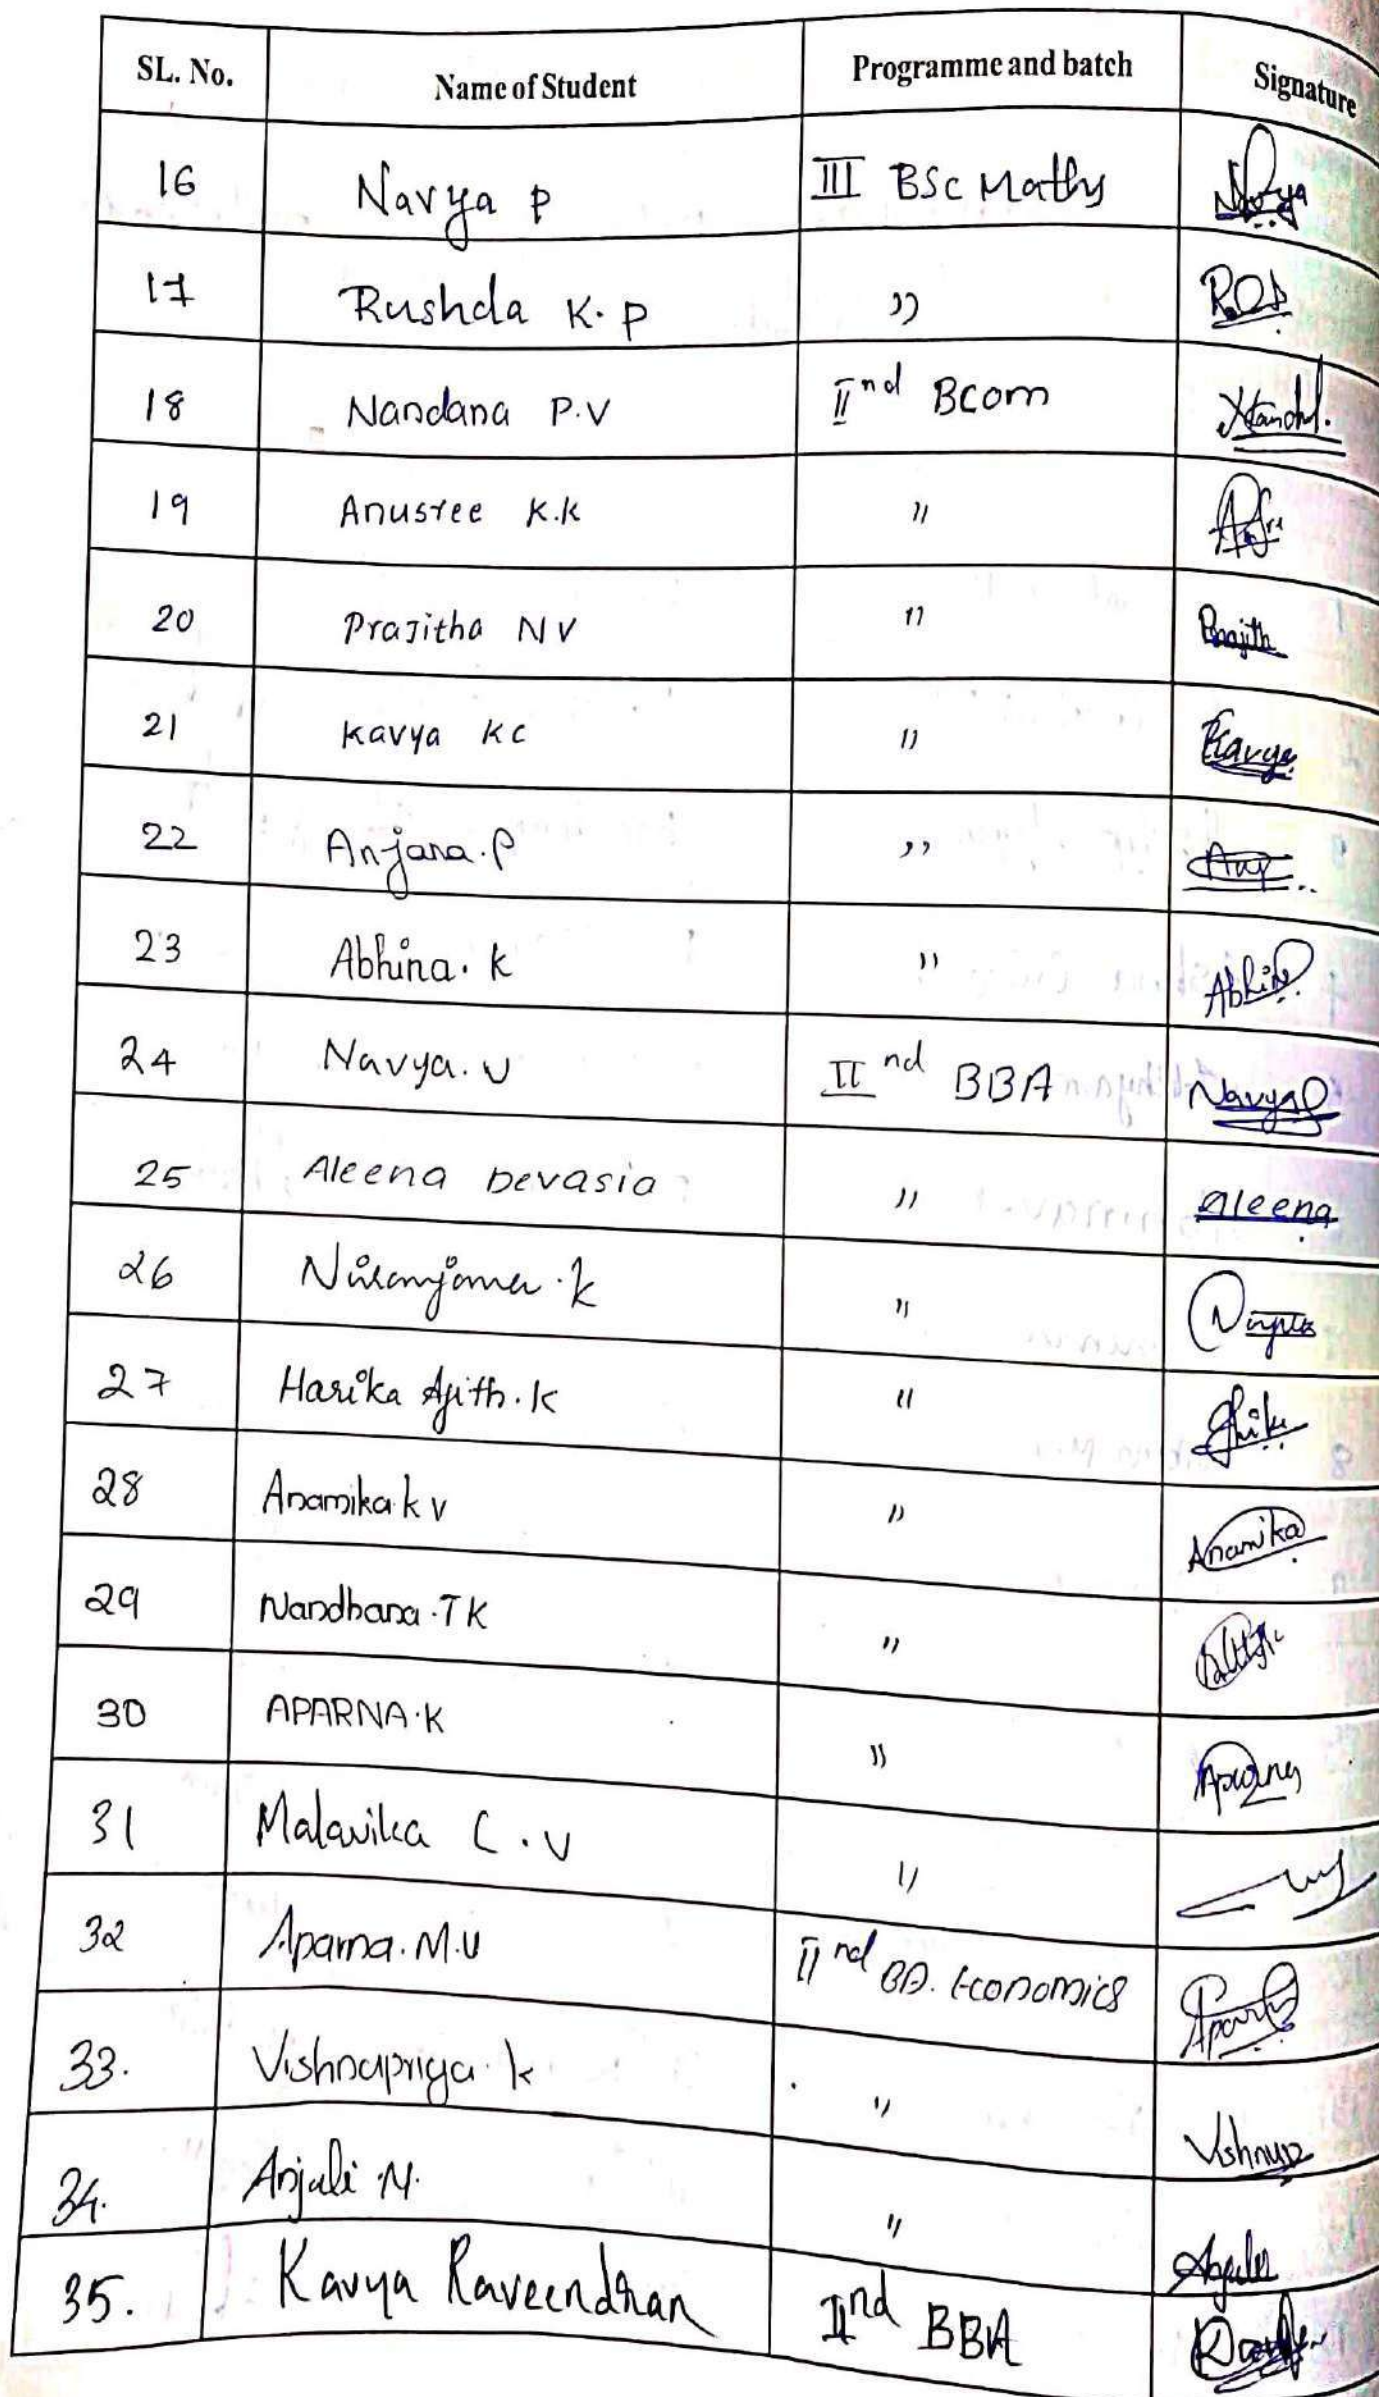 SL. No. Name of Student Programme and batch Signature
16 Navya P III BSc Maths Navya
17 Rushda K.P ))
18 Nandana P.V IInd Bcom
19 Anusree K.K ))
20 Prajitha NV )) Prajith
21 Kavya KC )) Kavya
22 Anjana.P ,,
23 Abhina.K )) Abhina
24 Navya.V IInd BBA Navya
25 Aleena Devasia )) Aleena
26 Niranjana.K ))
27 Harika Ajith.K ))
28 Anamika.k v )) Anamika
29 Nandhana.TK ))
30 APARNA.K )) Aparna
31 Malavika C.V ))
32 Aparna.M.V IInd BA. Economics Aparna
33. Vishnupriya.k )) Vishnup
34. Anjali.M. )) Anjali
35. Kavya Raveendran IInd BBA